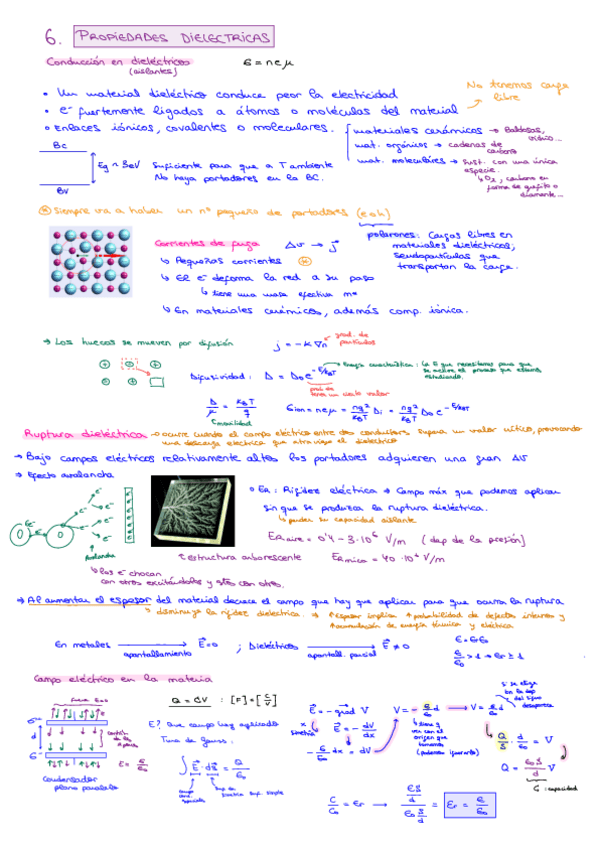 6. PROPIEDADES DIELECTRICAS
Conducción en dieléctricos
(aislantes)
σ = n e μ
• Un material dieléctrico conduce peor la electricidad
No tenemos carga libre
• e⁻ fuertemente ligados a átomos o moléculas del material
• Enlaces iónicos, covalentes o moleculares.
materiales cerámicos → Baldosas, vidrio...
mat. orgánicos → cadenas de carbono
mat. moleculares → Sust. con una única especie.
↳ O₂, carbono en forma de grafito o diamante...
BC
Eg ≈ 3eV
BV
Suficiente para que a T ambiente
No haya portadores en la BC.
* Siempre va a haber un nº pequeño de portadores (e o h)
polarones: Cargas libres en materiales dieléctricos, seudopartículas que transportan la carga.
Corrientes de fuga
ΔV → j
↳ Pequeñas corrientes *
↳ El e⁻ deforma la red a su paso
↳ tiene una masa efectiva m*
↳ En materiales cerámicos, además comp. iónica.
→ Los huecos se mueven por difusión
j = -K ∇n
grad. de partículas
Difusividad: D = D₀ e^(-E/KBT)
Energía característica: La E que necesitamos para que se active el proceso que estamos estudiando.
D/μ = KBT/q
movilidad
σion = neμ = nq²/KBT Di = nq²/KBT D₀ e^(-E/KBT)
Ruptura dieléctrica → ocurre cuando el campo eléctrico entre dos conductores supera un valor crítico, provocando
una descarga eléctrica que atraviesa el dieléctrico
→ Bajo campos eléctricos relativamente altos los portadores adquieren una gran ΔV
→ Efecto avalancha
e⁻
Avalancha
↳ los e⁻ chocan
con otros excitándolos y estos con otros.
• ER: Rigidez eléctrica → Campo máx que podemos aplicar
sin que se produzca la ruptura dieléctrica.
↳ pierden su capacidad aislante
ER aire = 0'4 - 3·10⁶ V/m (dep de la presión)
estructura arborescente
ER mica = 40·10⁶ V/m
→ Al aumentar el espesor del material decrece el campo que hay que aplicar para que ocurra la ruptura
disminuye la rigidez dieléctrica.
↑ Espesor implica ↑ probabilidad de defectos internos y
↑ acumulación de energía térmica y eléctrica
En metales → E = 0 ; Dieléctricos → E ≠ 0
apantallamiento
apantall. parcial
ε/ε₀ > 1 → εr ≥ 1
Campo eléctrico en la materia
Q = CV : [F] = [C/V]
E? Que campo hay aplicado
Tma de Gauss:
∫ E · dS = Q/ε₀
Condensador
plano paralelo
E = -grad V
E = -dV/dx
x simetría
V = Q/S · d/ε₀
Q = ε₀S/d V
C: capacidad
C/C₀ = εr → (εS/d)/(ε₀S/d) = εr = ε/ε₀